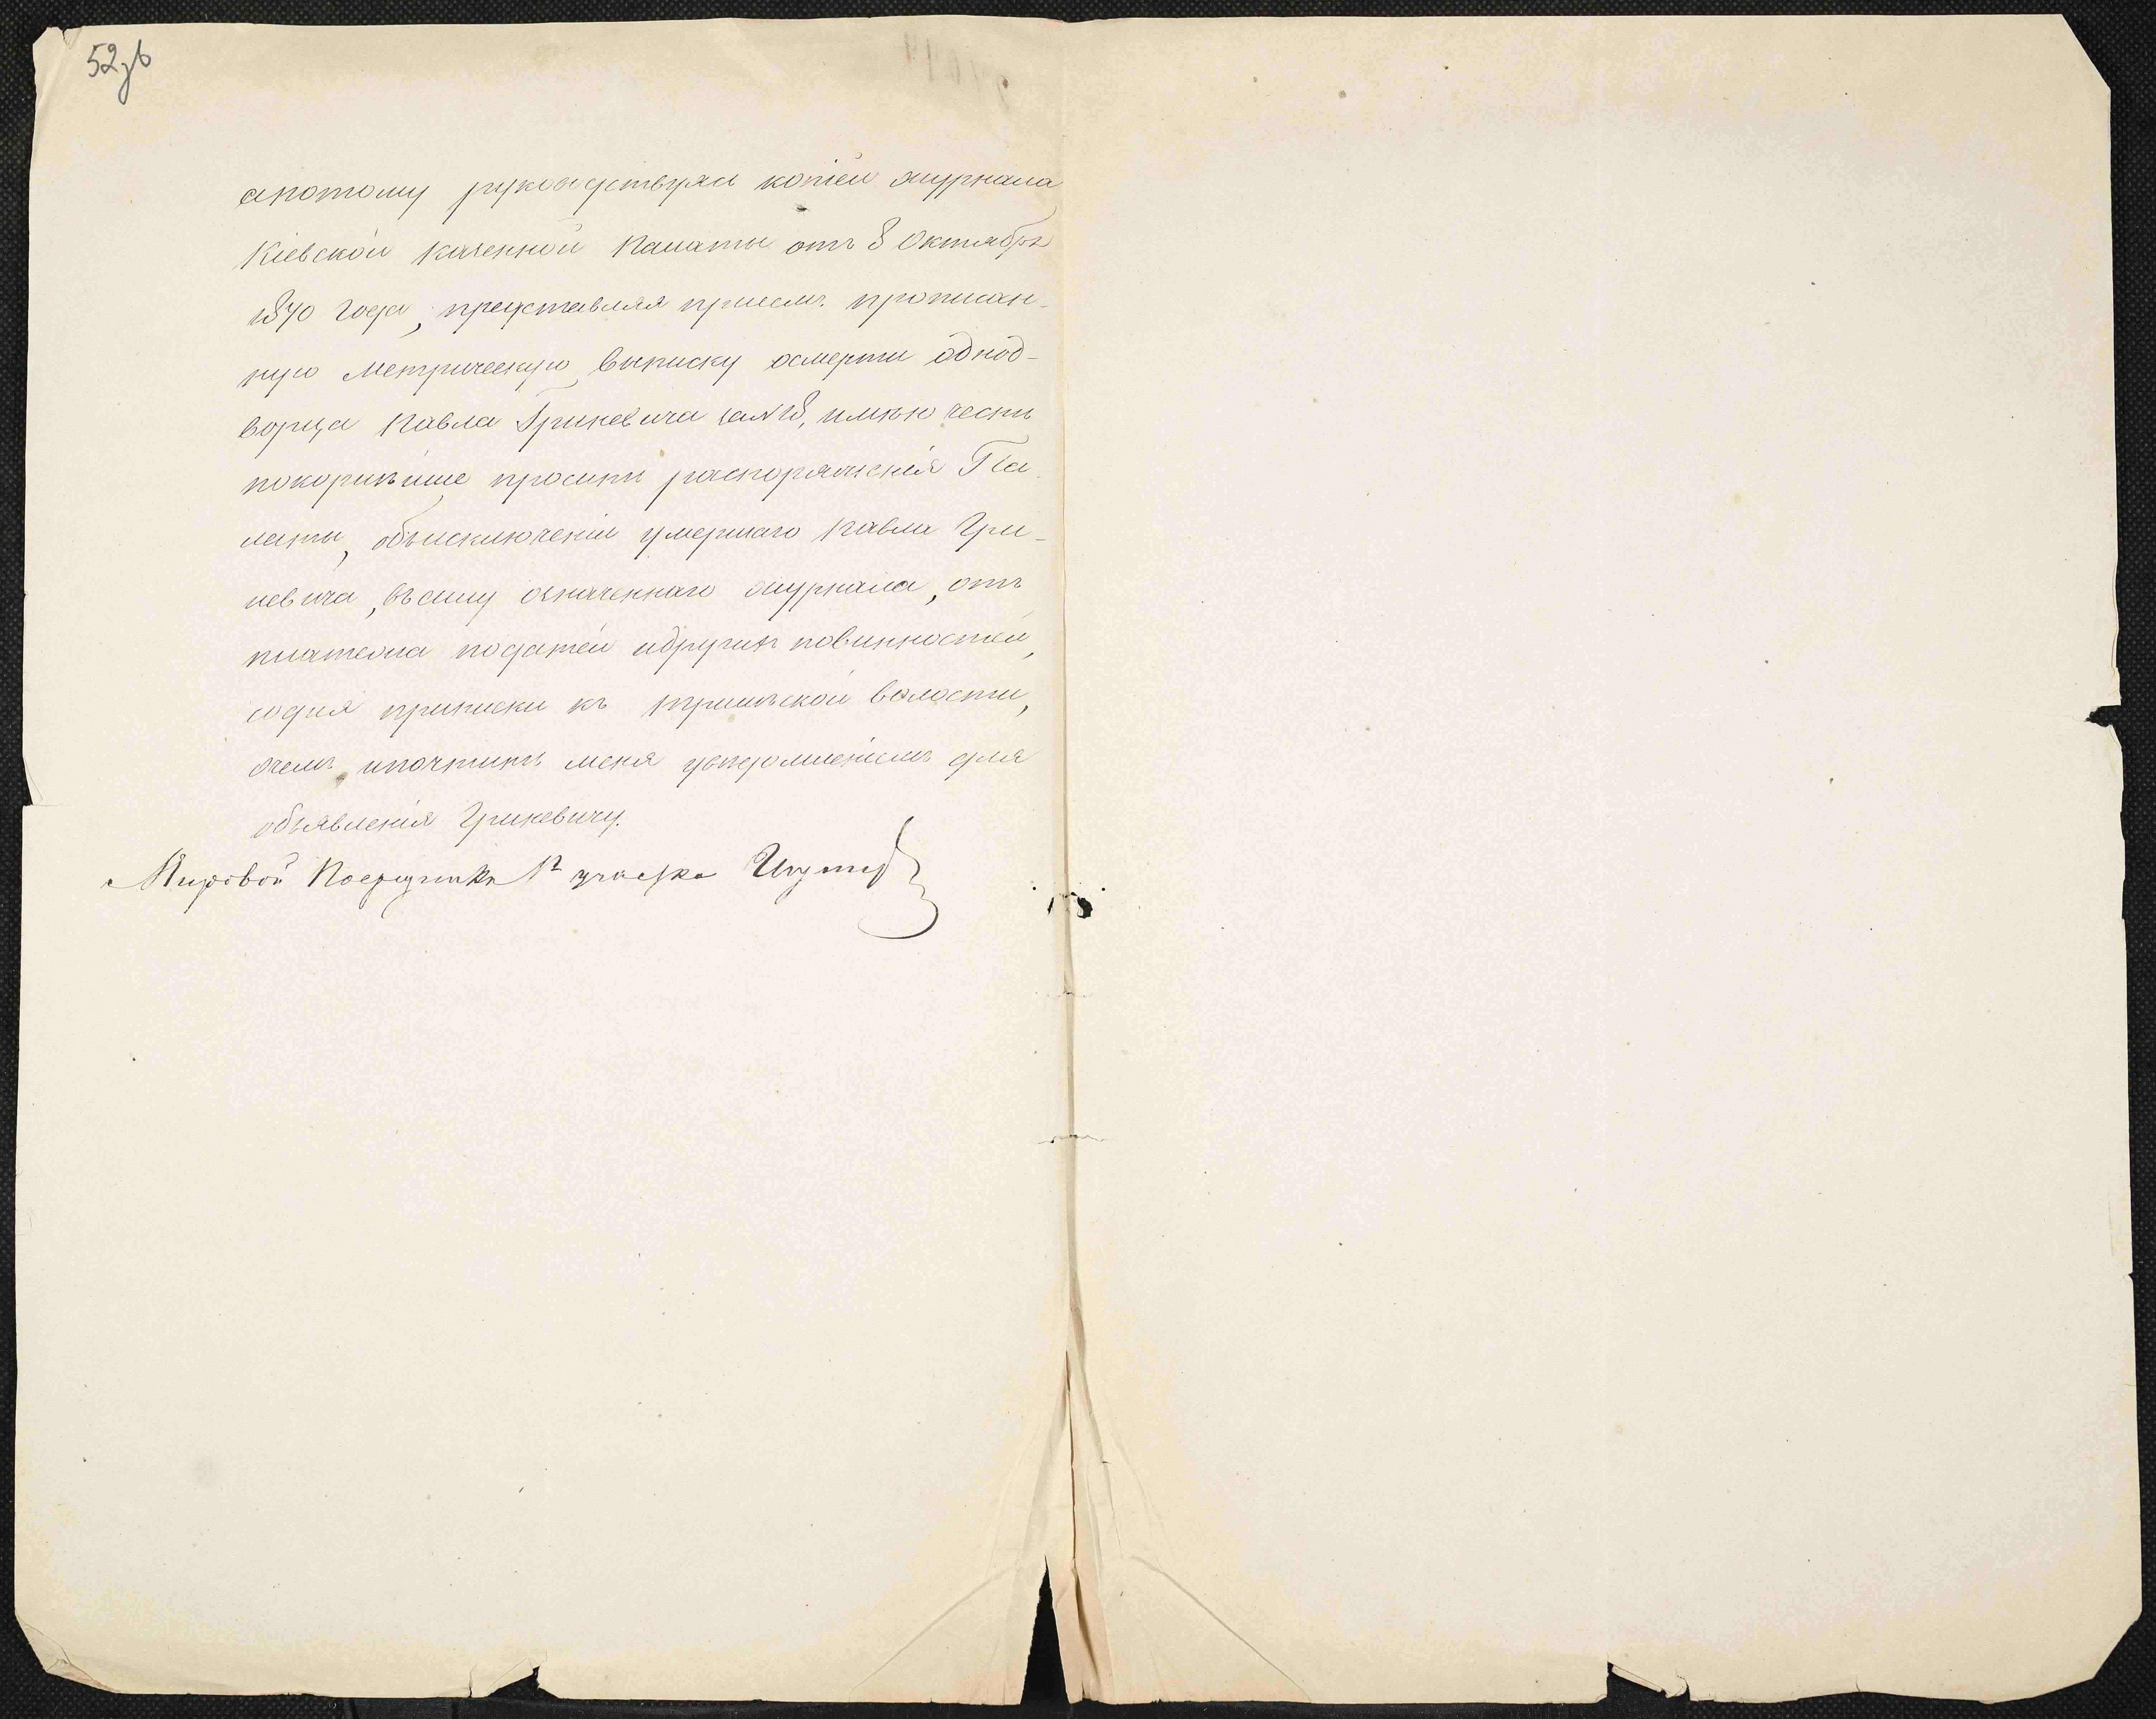 52зв
апотому руководствуяс копіей журнала
Кіевской Казенной Палаты отъ 8 Октября
1870 года, представляя присемъ прописан-
ную метрическую выписку осмерти однод-
ворца Павла Гриневича за№18, имѣю честь
покорнѣйше просить распоряженія Па-
латы, объисключеніи умершаго Павла Гри-
невича, въсилу означеннаго журнала, отъ
платежа податей идругихъ повинностей,
содня приписки къ волости,
очемъ ипочтить меня увѣдомленіемъ для
объявленія Гриневичу.
Мировой Посредникъ 1º участка